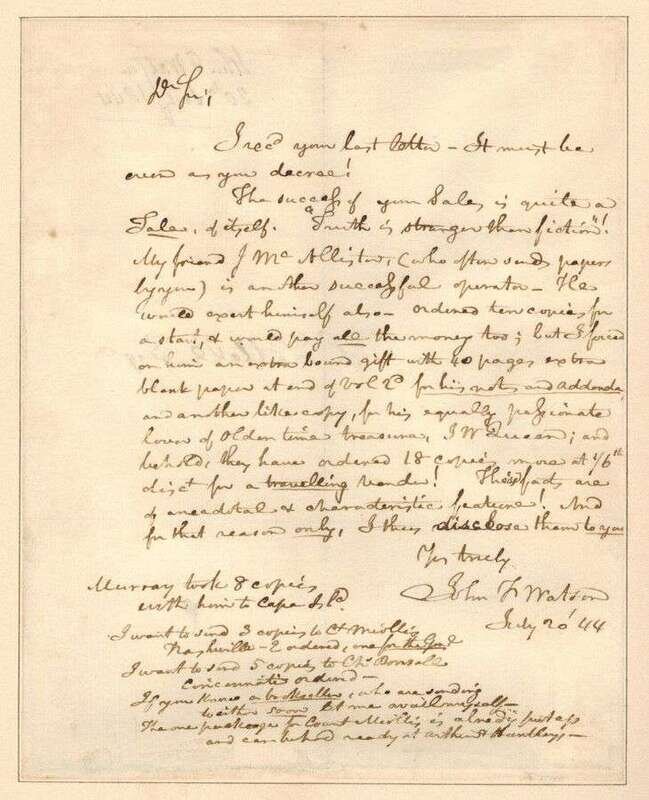 Dr Sir,
I recd your last letter – It must be
even as you decree!
The success of your Sales is quite a
Tale, of itself. "Truth is stranger than fiction"!
My friend J McAllister, (who often sends papers
by you) is another successful operator – He
would exert himself also – ordered ten copies for
a start, & would pay all the money too; but I forced
on him an extra bound gift with 40 pages extra
blank paper at end of Vol 2d for his notes and addenda,
and another like copy, for his equally passionate
lover of Olden time treasures, J W Queen; and
behold, they have ordered 18 copies more at 1/6th
disct for a travelling vender! These facts are
of anecdotal & characteristic feature! And
for that reason only, I thus disclose them to you
Yrs truly
John F Watson
July 20 '44
Murray took 8 copies
with him to Cape Isld.
I want to send 3 copies to Ct
Nashville – 2 ordered, one for the
I want to send 5 copies to Chs Bonsall
Cincinnati ordered –
If you know a bookseller, who are sending
to either soon let me avail myself –
The one package for Count is already put up
and can be had ready at